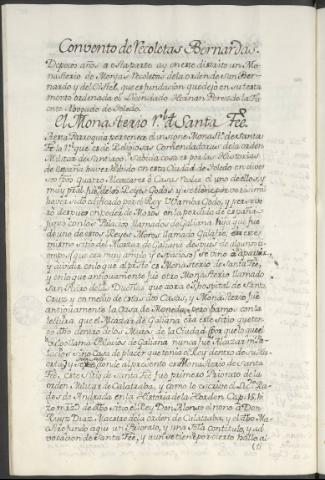 Convento de Recoletas Bernardas.
De pocos años a esta parte ay en este distrito un Mo-
nasterio de Monjas Recoletas de la orden de san Ber-
nardo y del Cistel, que es fundacion que dejo en su testa
mento ordenada el Licenciado Hernan Perez de la Fu
ente Abogado de Toledo.
El Monasterio R.l d.e Santa Fee.
A esta Parroquia pertenece el insigne Monast.o de santa
Fe la R.l que es de Religiosas Comendadoras de la orden
Militar de Santiago. Sabida cosa es por las Historias
de España haver habido en esta Ciudad de Toledo en diver
sos tpos. Quatro Alcazares ô Casas Reales. el uno de ellos, y
muy pral. fue de los Reyes Godos, y se tiene por verisimil
haver sido edificado por el Rey Wamba Godo, y perseve
rò despues en poder de Moros en la perdida de españa.
son los Palacios llamados de Galiana hija que fue
de uno de estos Reyes Moros llamado Galafre. en este
mismo sitio del Alcazar de Galiana despues de algun ti-
empo, que era muy amplio y espacioso se vino a apartar
y dividir en lo que al pres.te es Monasterio de santa Fee,
y en lo que antiguamente fue otro Monasterio llamado
San Pedro de las Dueñas que aora es hospital de Santa
Cruz y en medio de estas dos Casas, y Monasterio fue
antiguamente la Casa de Moneda, pero bamos con la
letura que el Alcazar de Galiana era este sitio questa
dho dentro de los Muros de la Ciudad por que lo que
llaman Palacios de Galiana nunca fue Alcazar ni Pa-
lacio sino Casa de placer que tenia el Rey dentro de su Hu-
erta, y viniendo al presente en Monasterio de Santa
Fee. este sitio de Santa Fee fue primero Priorato de la
orden Militar de Calatrava, y como lo escrive el Lic.do Ra-
des de Andrada en la Historia de la Horden Cap. 15. hi-
zo md. de dho sitio el Rey Don Alonso el nono a Don
Ruy Diaz Maestre de la orden de Calatrava, y el dho Ma-
estre fundo aqui un Priorato, y una Igl.a con titulo, y ad
vocacion de santa Fee, y aun se tiene por cierto hallo al